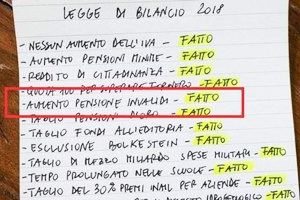 LEGGE DI BILANCIO 2018
- NESSUN AUMENTO DELL'IVA - FATTO
- AUMENTO PENSIONI MINIME - FATTO
- REDDITO DI CITTADINANZA - FATTO
- QUOTA 100 PER SUPERARE FORNERO - FATTO
- AUMENTO PENSIONE INVALIDI - FATTO
- TAGLIO PENSIONI D'ORO - FATTO
- TAGLIO FONDI ALL'EDITORIA - FATTO
- ESCLUSIONE BOLKESTEIN - FATTO
- TAGLIO DI MEZZO MILIARDO SPESE MILITARI - FATTO
- TEMPO PROLUNGATO NELLE SCUOLE - FATTO
- TAGLIO DEL 30% PREMI INAIL PER AZIENDE - FATTO
IDROGEOLOGICO - FATTO